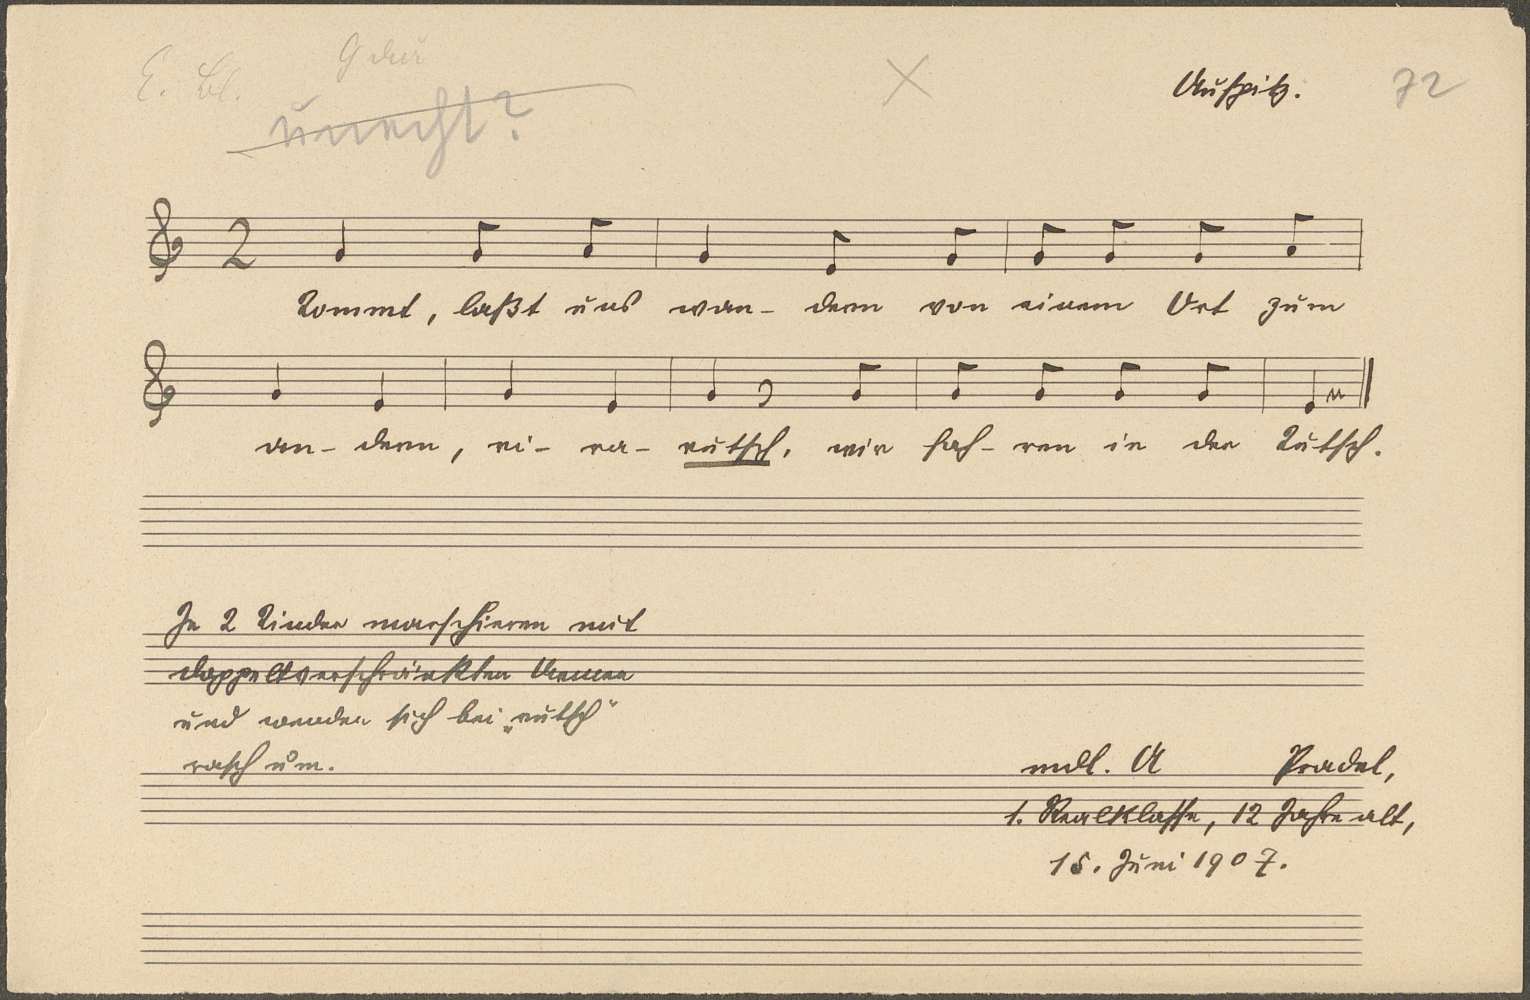 G dur
E. Bl.
unecht?
Auspitz.
72
2
Kommt, laßt uns wan- dern von einem Ort zum
an- dern, ri- ra- rutsch, wir fah- ren in der Kutsch.
Je 2 Kinder marschieren mit
doppeltverschränkten Armen
und wenden sich bei „rutsch“
rasch um.
mdl. A Pradel,
1. Realklasse, 12 Jahre alt,
15. Juni 1907.